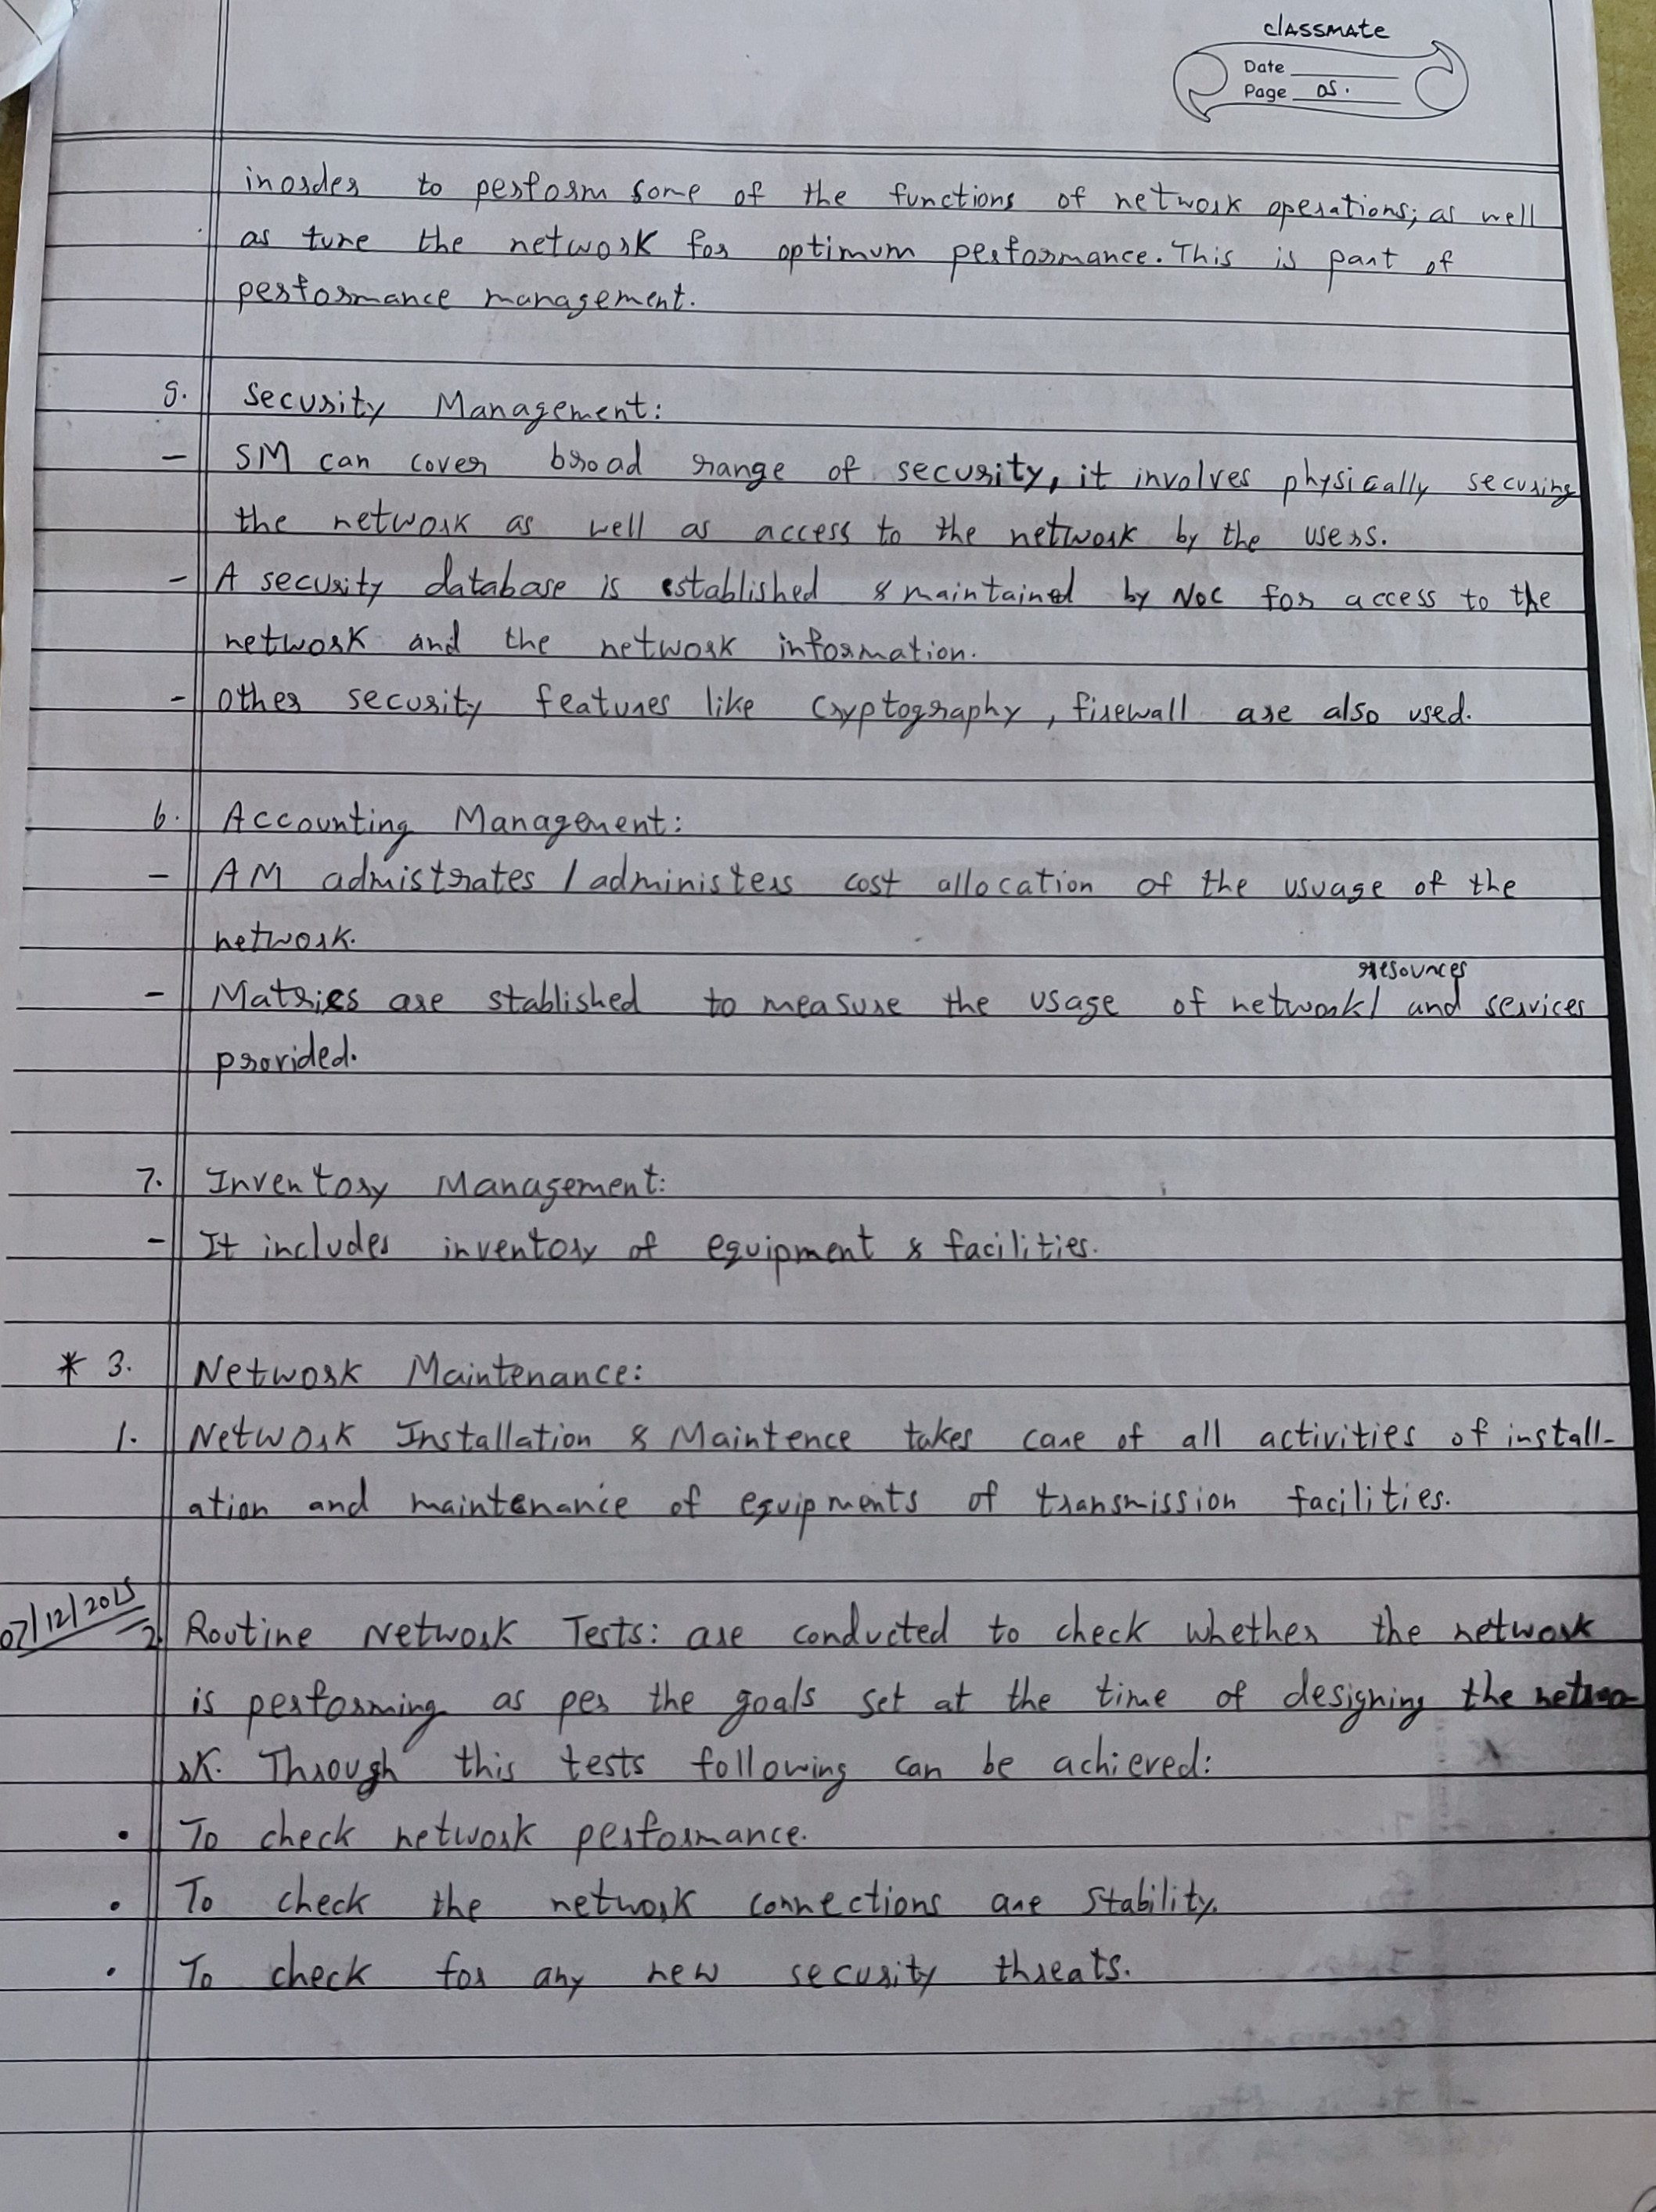 classmate
Date
Page 05.
inorder to perform some of the functions of network operations; as well
as tune the network for optimum performance. This is part of
performance management.
5. Security Management:
- SM can cover broad range of security, it involves physically securing
the network as well as access to the network by the users.
- A security database is established & maintained by NOC for access to the
network and the network information.
- Other security features like Cryptography, firewall are also used.
6. Accounting Management:
- AM admistrates / administers cost allocation of the usuage of the
network.
resources
- Matrics are stablished to measure the usage of network/ and services
provided.
7. Inventory Management:
- It includes inventory of equipment & facilities.
* 3. Network Maintenance:
1. Network Installation & Maintence takes care of all activities of install-
ation and maintenance of equipments of transmission facilities.
07/12/2015
2. Routine Network Tests: are conducted to check whether the network
is performing as per the goals set at the time of designing the netwo-
rk. Through this tests following can be achieved:
• To check network performance.
• To check the network connections are Stability.
• To check for any new security threats.